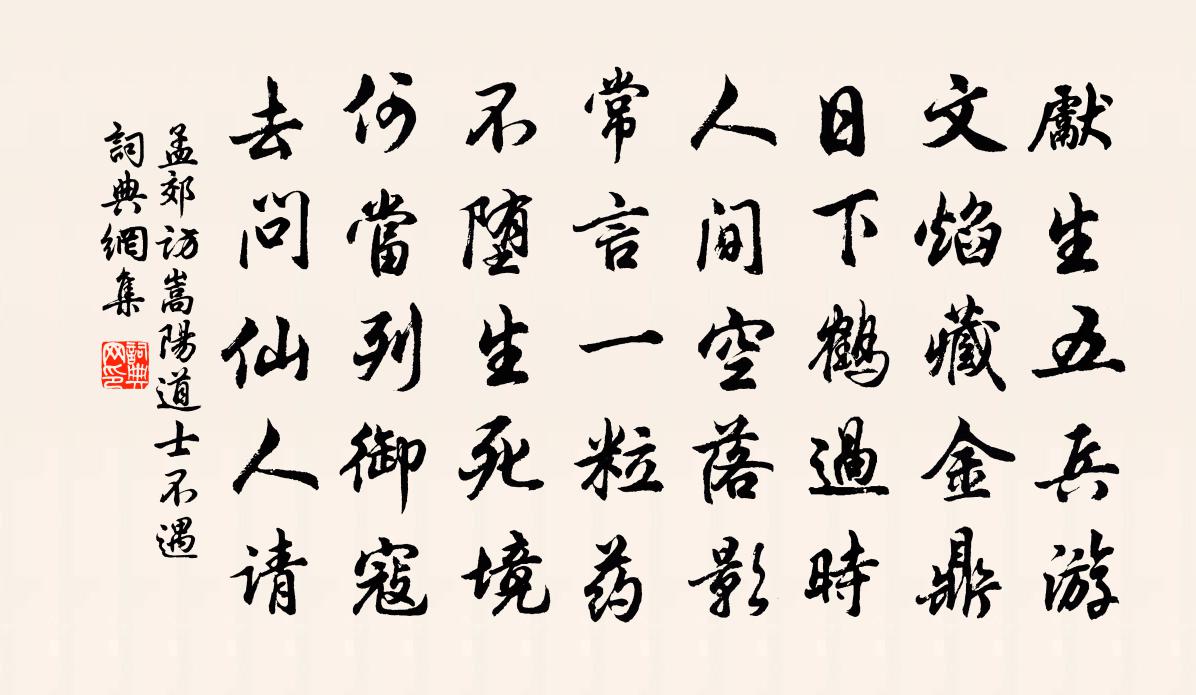 獻生五兵游
文焰藏金鼎
日下鶴過時
人间空落影
常言一粒药
不堕生死境
何當列御寇
去問仙人请
孟郊访嵩陽道士不遇
詞典網集
詞典网印